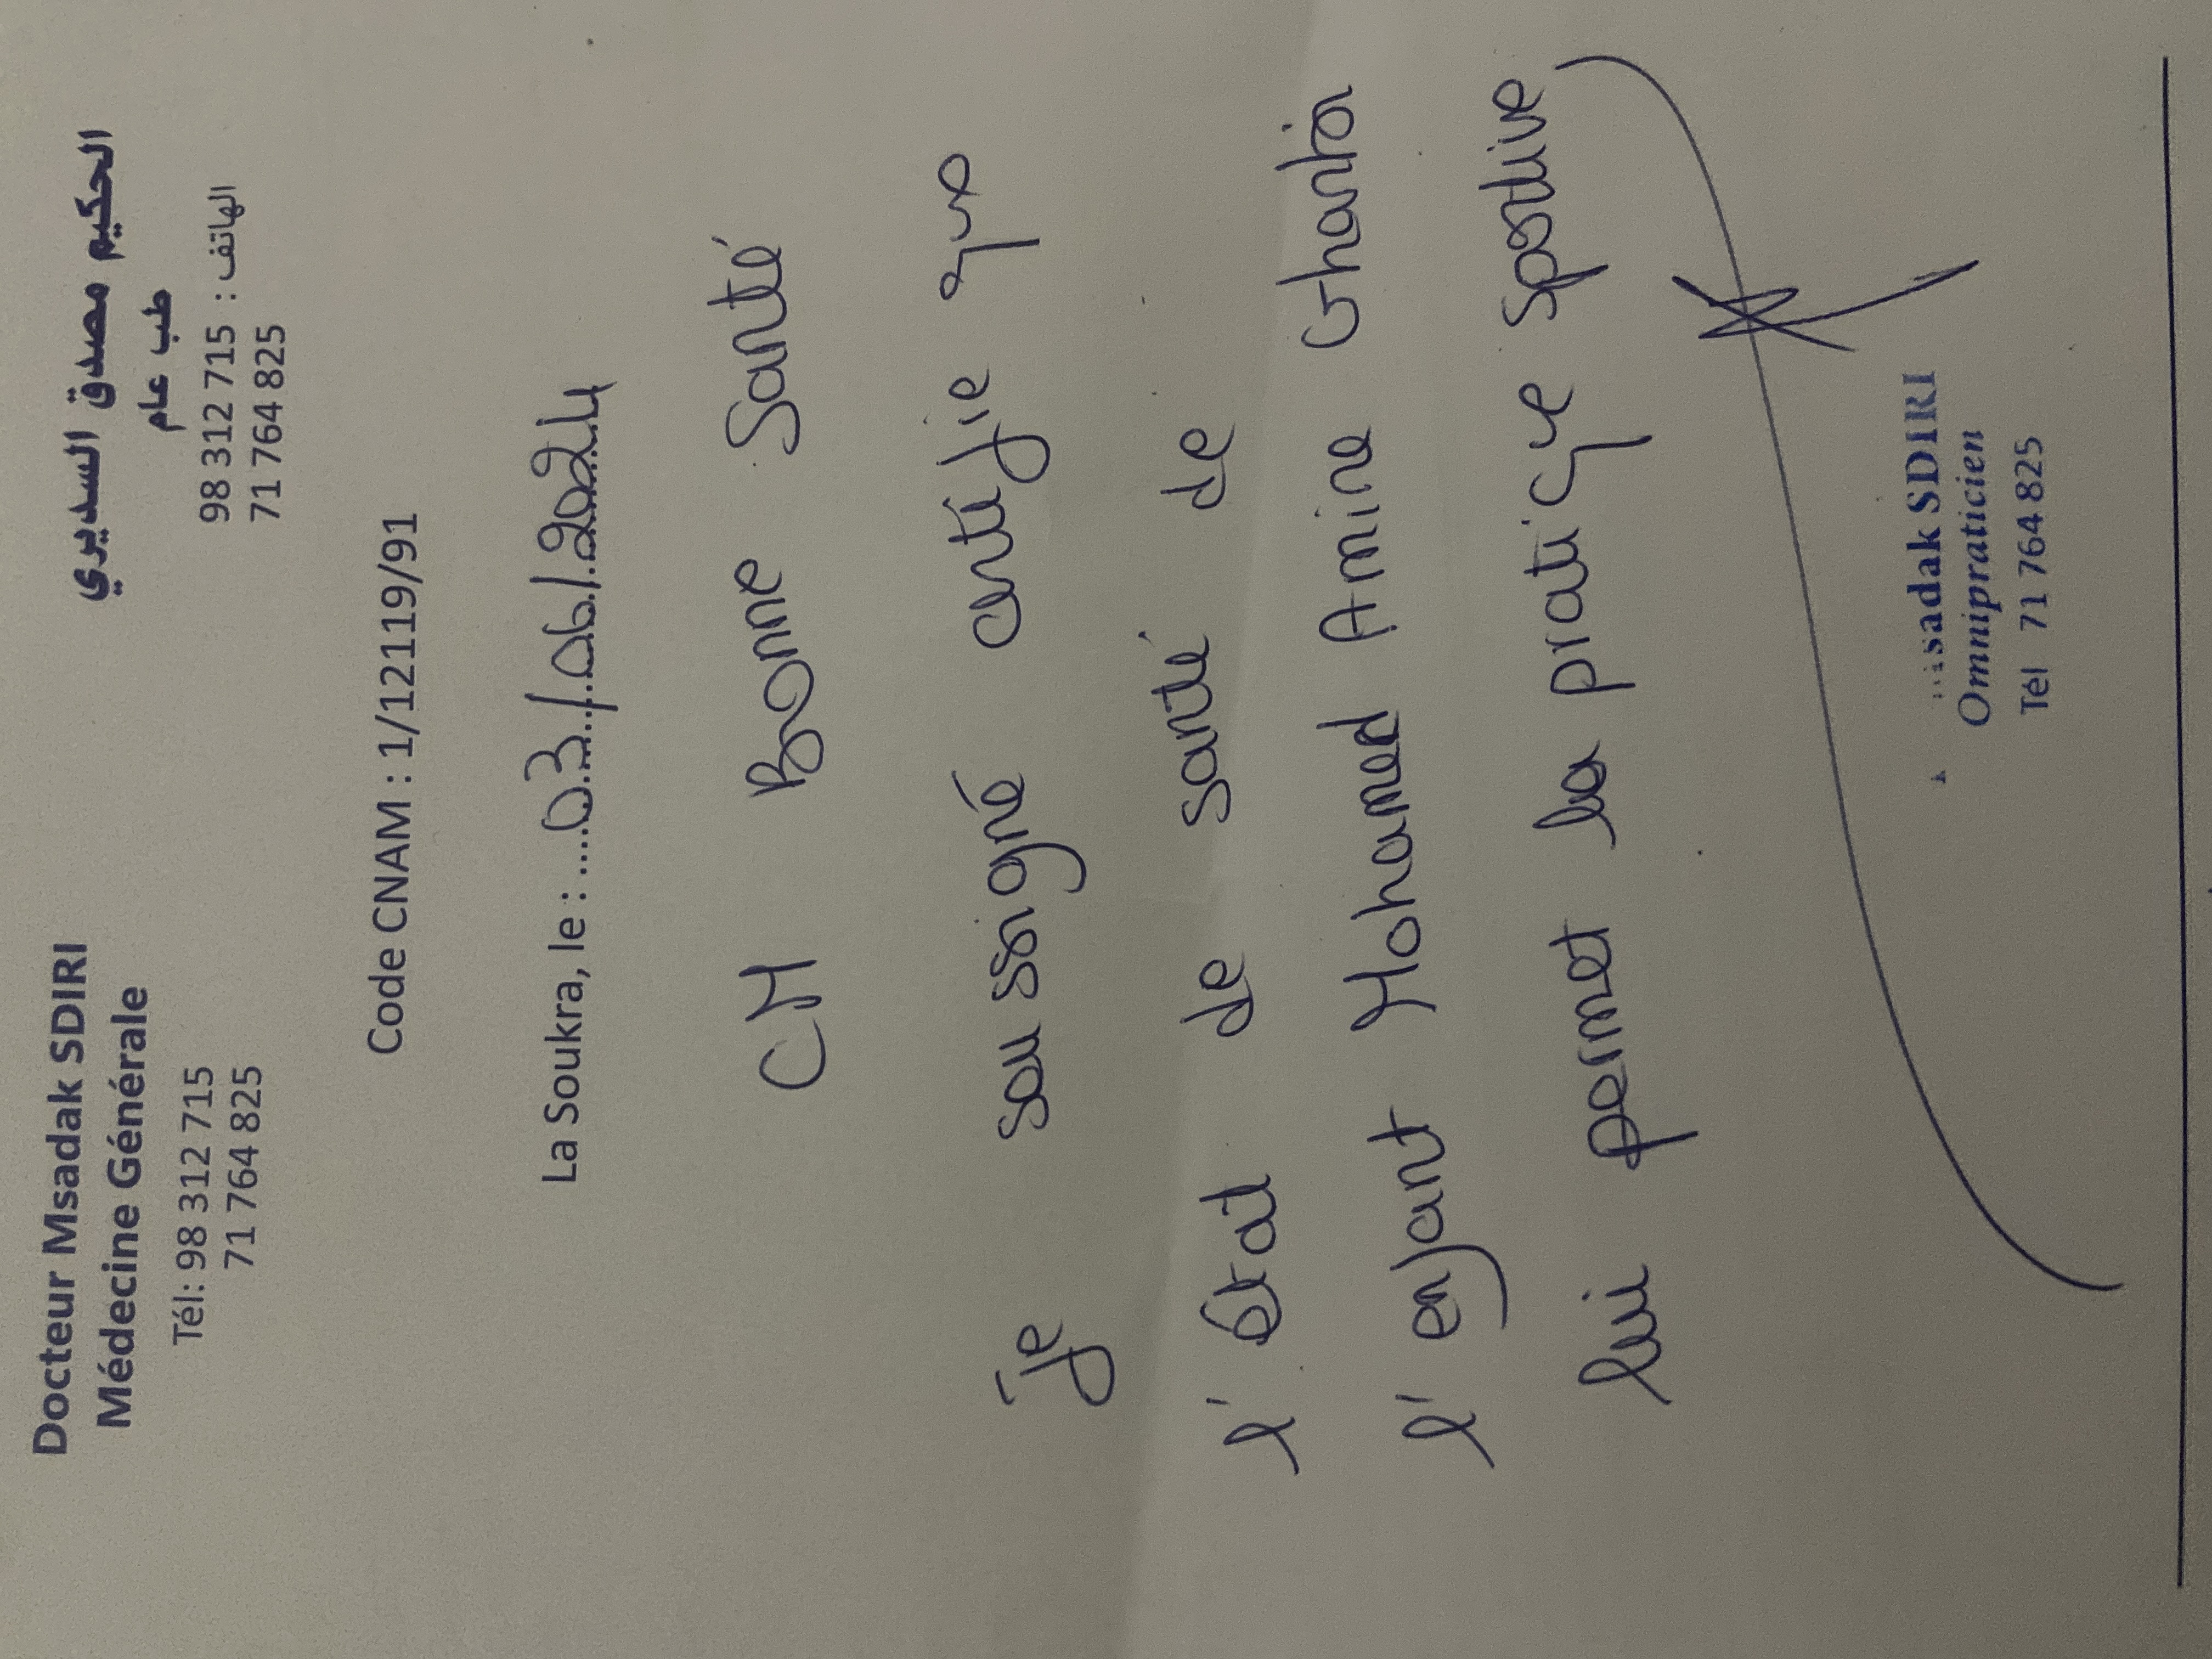 Docteur Msadak SDIRI
Médecine Générale
Tél: 98 312 715
71 764 825
الحكيم مصدق السديري
طب عام
الهاتف : 98 312 715
71 764 825
Code CNAM : 1/12119/91
La Soukra, le : 03/06/2024
CM Bonne Santé
je soussigné certifie que
l'état de santé de
l'enfant Mohamed Amine Ghanha
lui permet la pratique sportive
sadak SDIRI
Omnipraticien
Tél 71 764 825